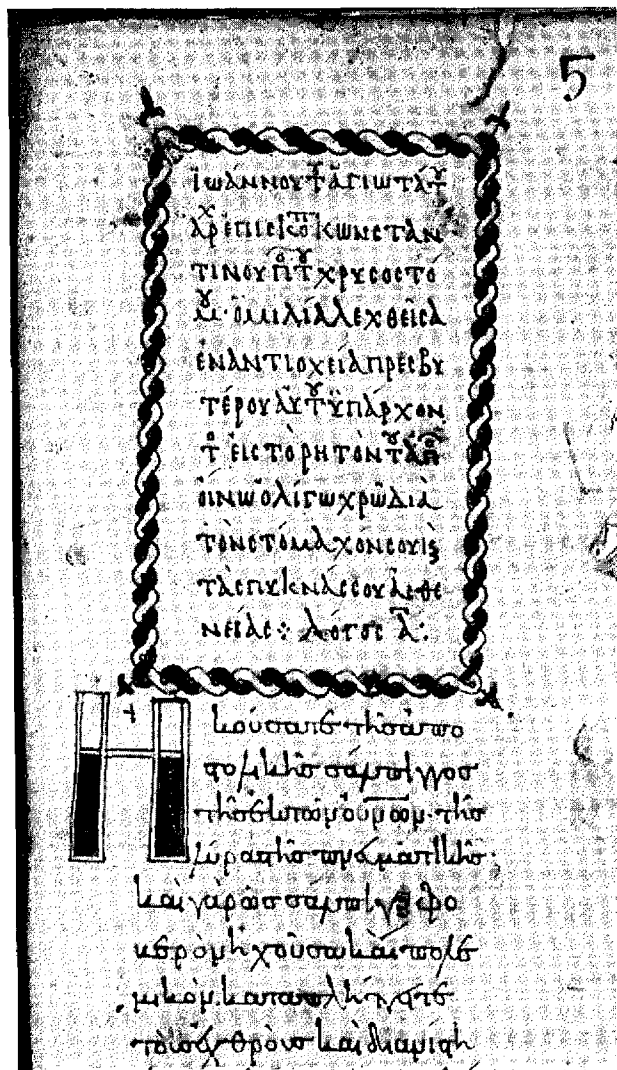 ἰωάννου τ ἁγιωτάτ
ἀρχεπισκοπ κωνσταν
τινουπ τ χρυσοστό
μ· ὁμιλία λεχθεῖσα
ἐν ἀντιοχεία πρεσβυ
τέρου αὐτ ὑπάρχον
τ εἰς τὸ ῥητὸν τ ἀπ
οἴνω ὀλίγω χρῶ διὰ
τὸν στόμαχόν σου κς
τὰς πυκνάς σου ἀσθε
νείας: λόγος α:
Ἠκούσατε τῆς ἀπο
στολικῆς σάλπιγγος
τῆς ἐκ τῶν οὐνῶν· τῆς
λύρας τῆς πνευματικῆς·
καὶ γὰρ ὡς σάλπιγξ φο
βερὸν ἠχοῦσα καὶ πολε
μικὸν, καταπλήττει τε
τοὺς ἐχθροὺς καὶ διανίστη
5